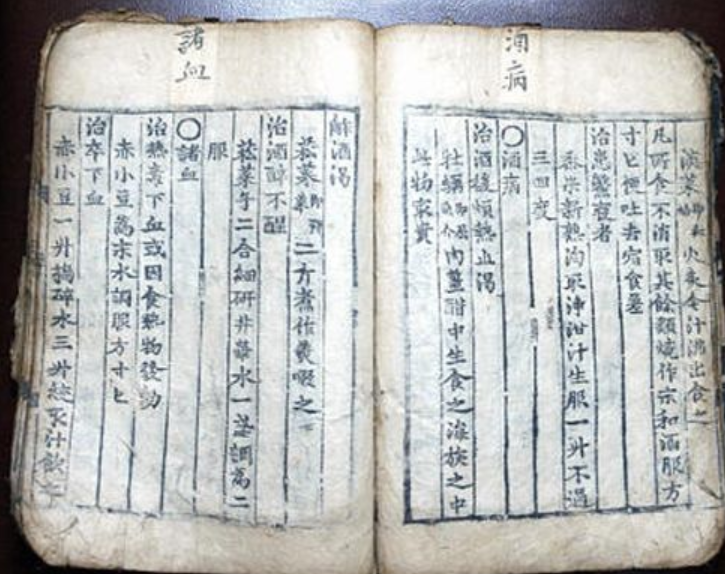 酒病
菜火炙令汁沸出食之
凡所食不消取其餘類燒作末和酒服方
寸匕便吐去宿食差
治患鱉瘕者
黍米新熟淘取泔汁生服一升不過
三四度
○酒病
治酒後煩熱止渴
牡蠣肉薑醋中生食之海族之中
此物最貴
諸血
解酒渴
菘菜二斤煮作羹啜之
治酒醉不醒
菘菜子二合細研井華水一盞調爲二
服
○諸血
治熱毒下血或因食熱物發動
赤小豆爲末水調服方寸匕
治卒下血
赤小豆一升搗碎水三升絞取汁飲之